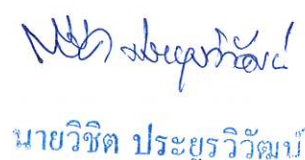 นายวิชิต ประยูรวิวัฒน์